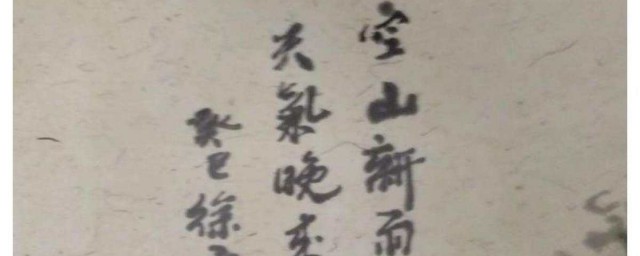 空山新雨
天氣晚来
癸巳徐